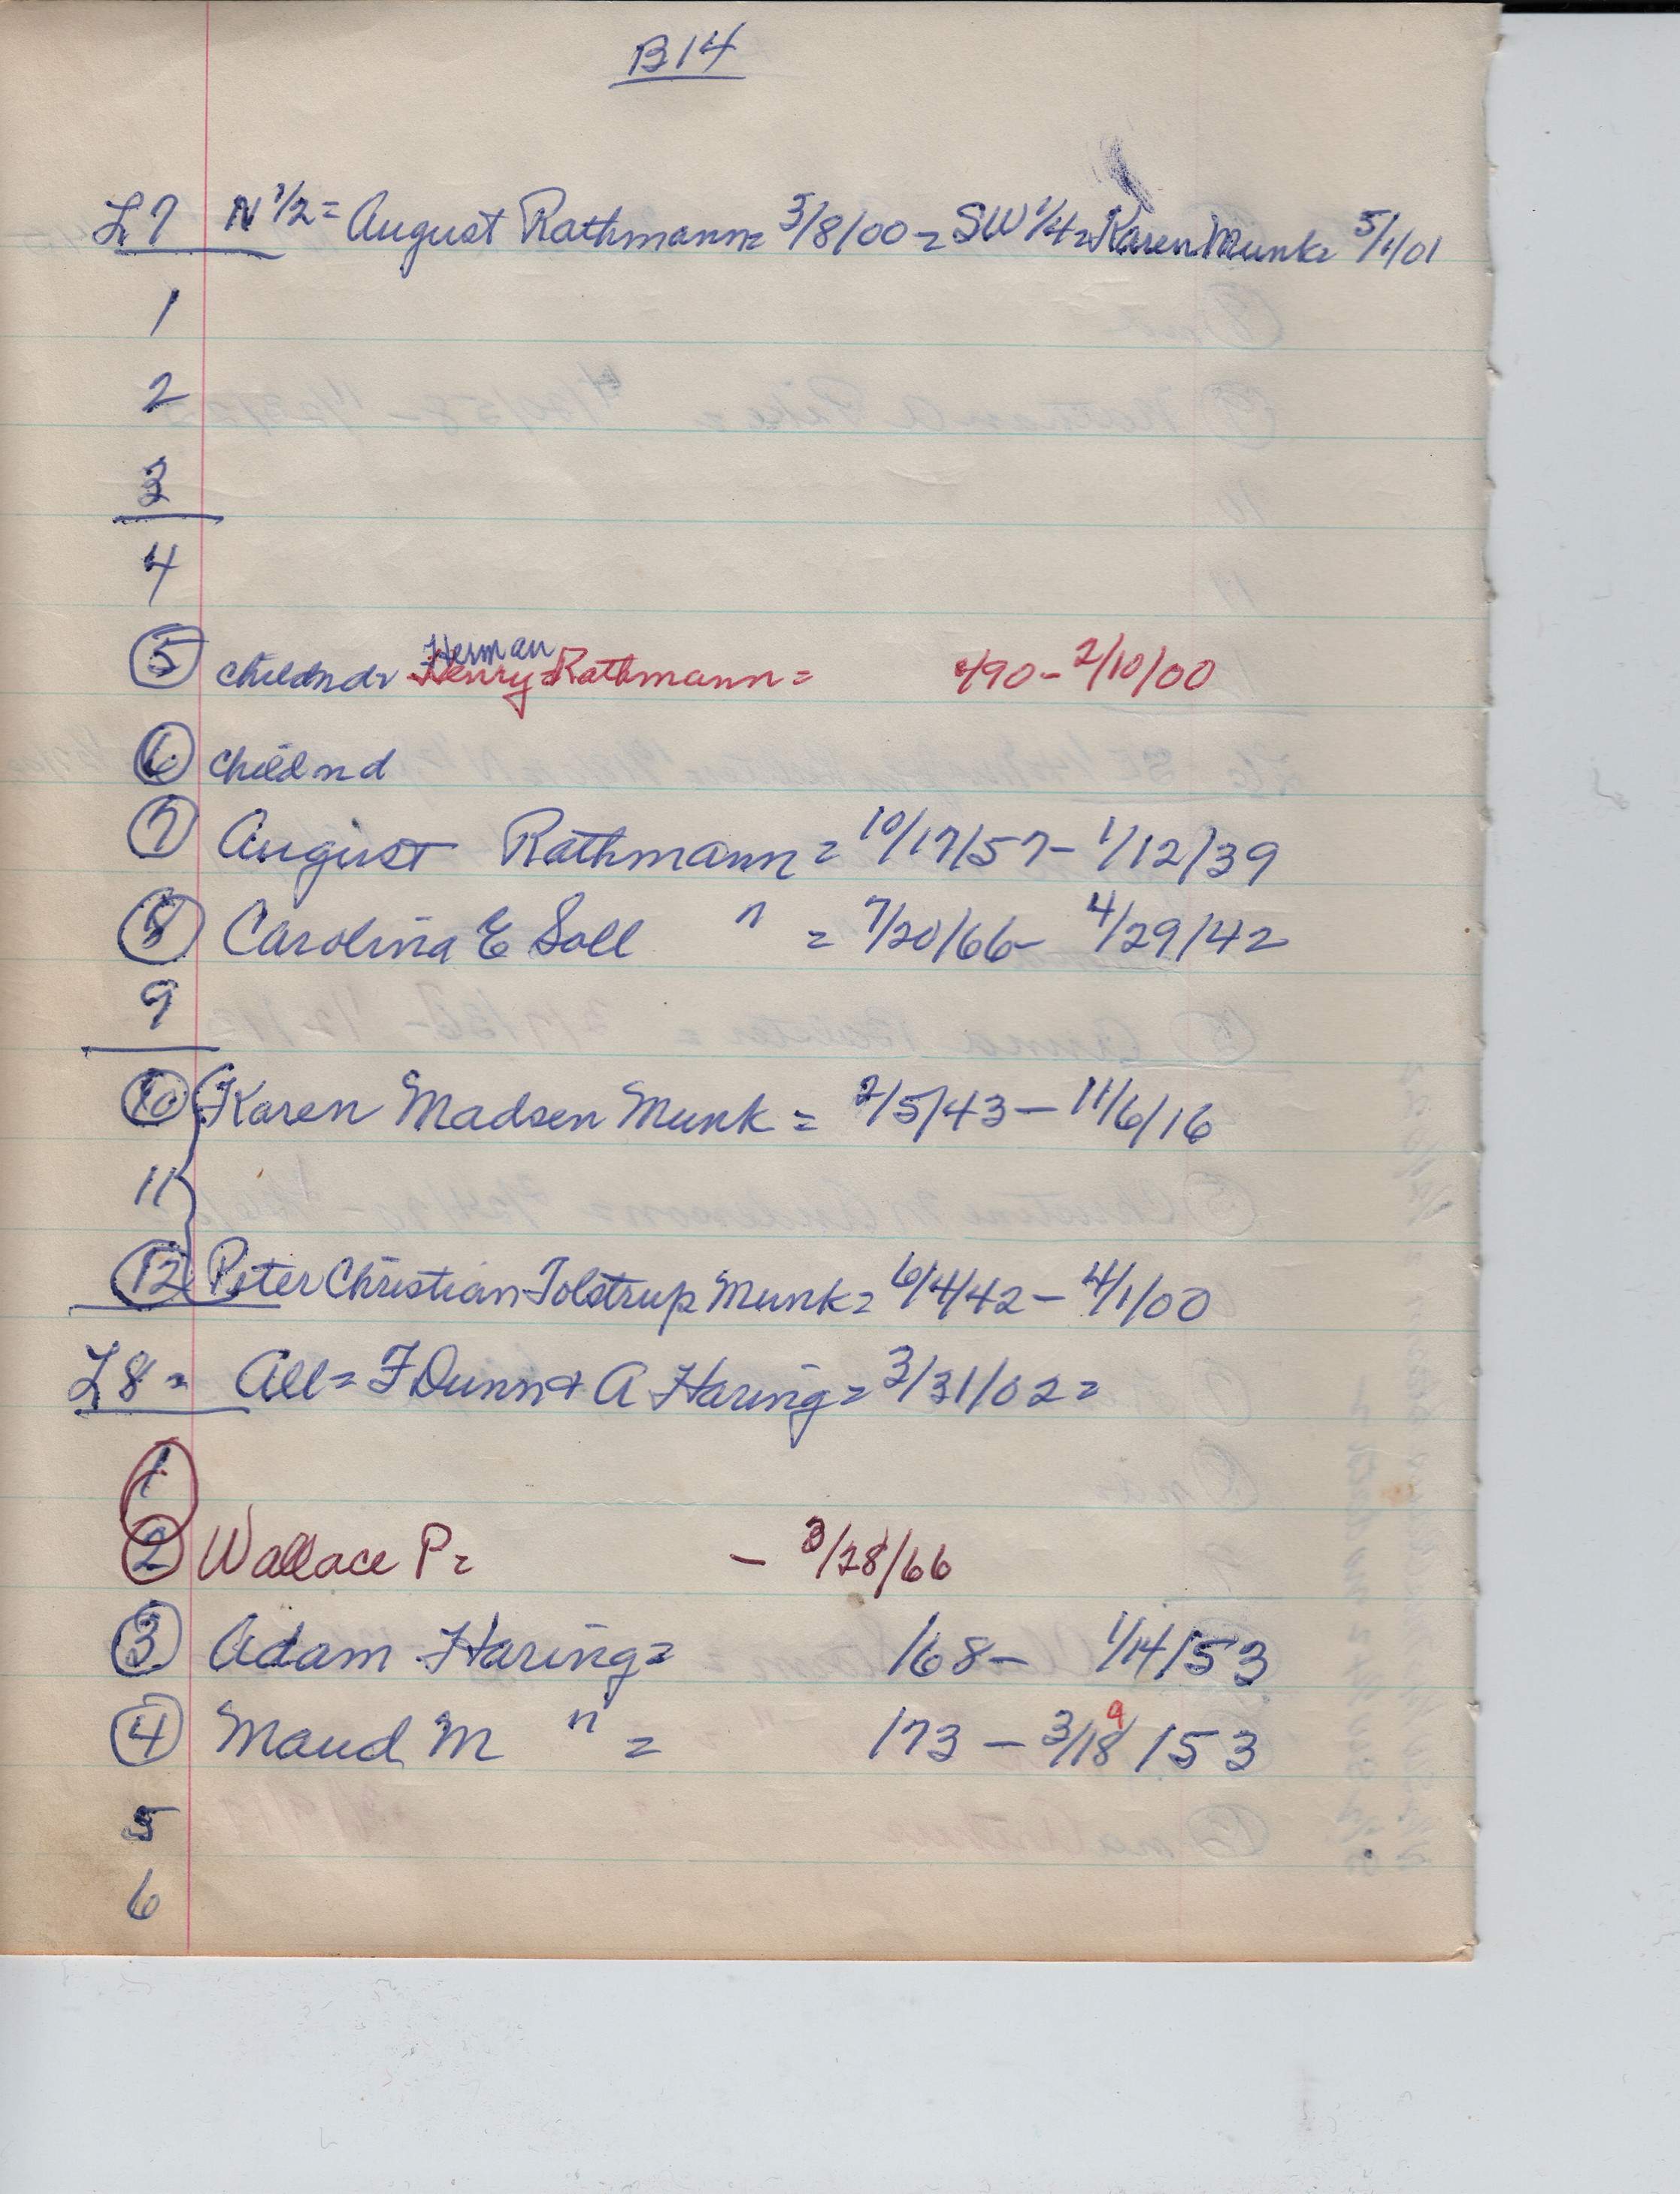 B14
L7 N 1/2 = August Rathmann = 3/8/00 = SW 1/4 = Karen Munk = 5/1/01
1
2
3
4
5 child nd Herman Henry Rathmann = /90 - 2/10/00
6 child nd
7 August Rathmann = 10/17/57 - 1/12/39
8 Carolina E Soll " = 7/20/66 - 4/29/42
9
10 Karen Madsen Munk = 2/5/43 - 11/6/16
11
12 Peter Christian Tolstrup Munk = 6/4/42 - 4/1/00
L8 = All = F Dunn + A Haring = 3/31/02 =
1
2 Wallace P = - 3/28/66
3 Adam Haring = /68 - 1/14/53
4 Maud M " = /73 - 3/18 9 /53
5
6